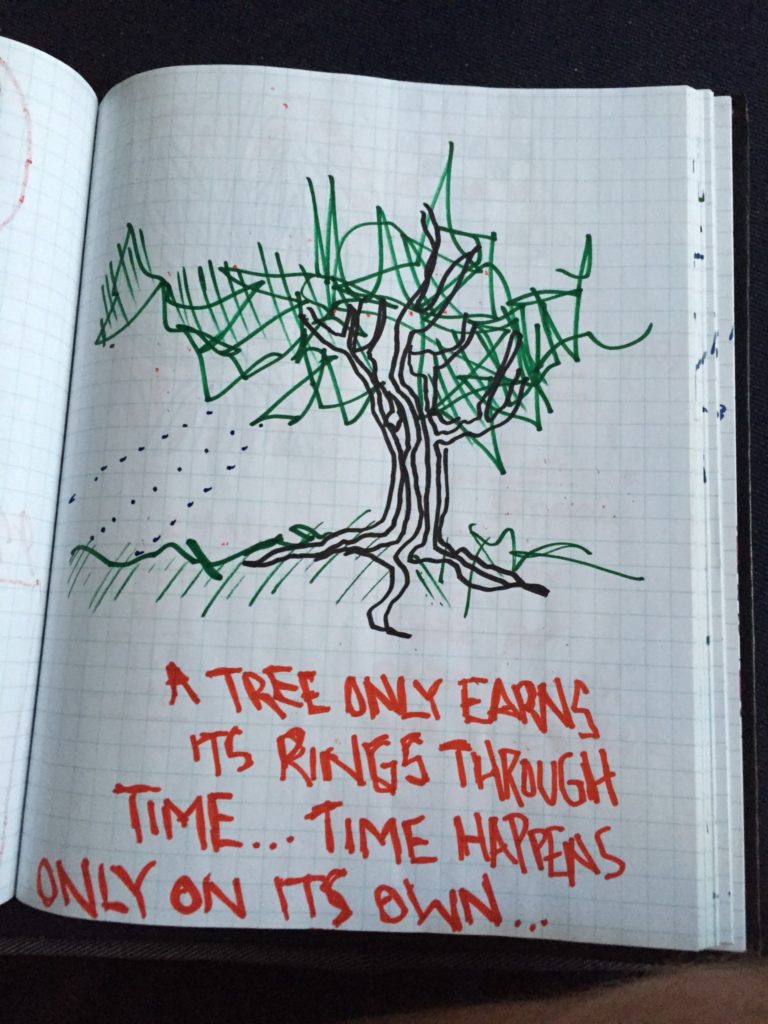 A TREE ONLY EARNS
ITS RINGS THROUGH
TIME... TIME HAPPENS
ONLY ON ITS OWN...